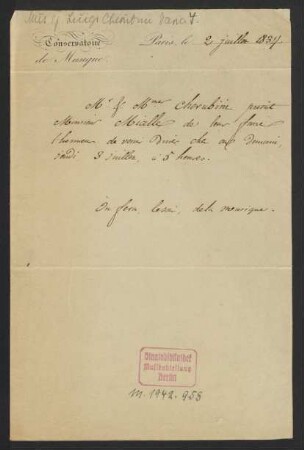 Conservatoire
de Musique.
Paris, le 2 juillet 1834
Mr & Mme Cherubini prient
Monsieur Mialle de leur faire
l'honneur de venir Diner chez eux
jeudi 3 juillet, à 5 heures.
On fera de la musique.
Staatsbibliothek
Musikabteilung
Berlin
M. 1942.958